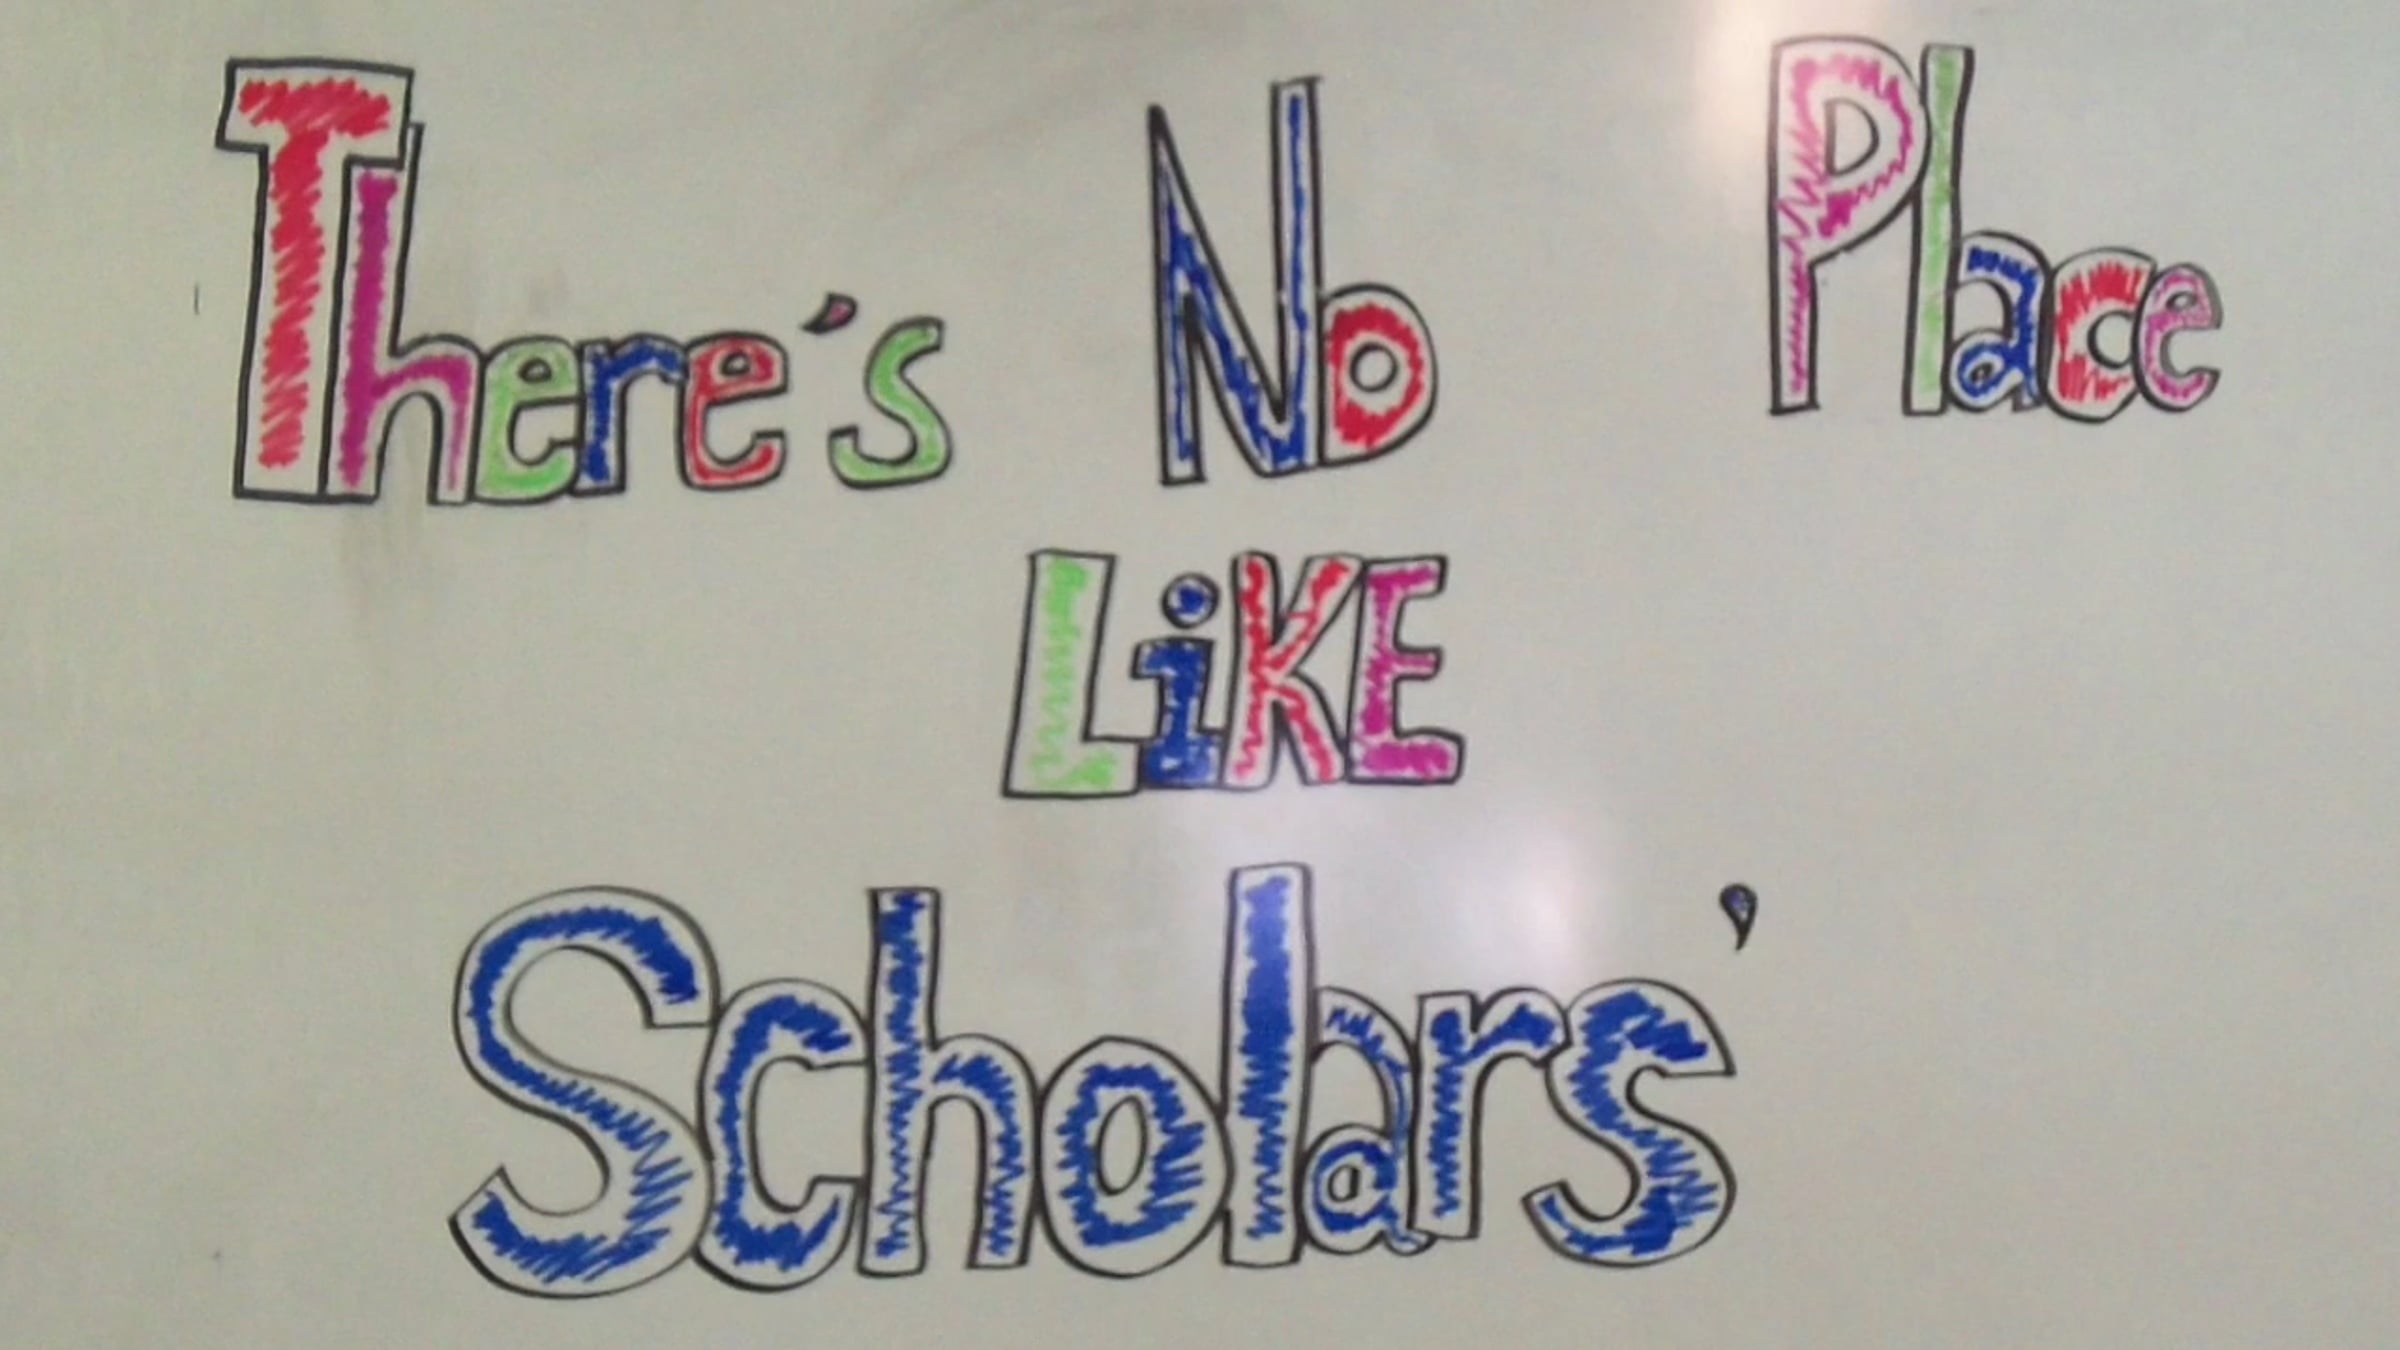 There's No Place
LiKE
Scholars'